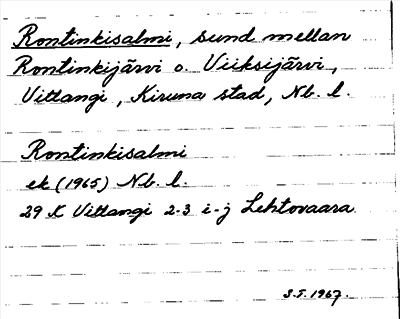 Rontinkisalmi, sund mellan
Rontinkijärvi o. Viiksijärvi,
Vittangi, Kiruna stad, Nb. l.
Rontinkisalmi
ek (1965) Nb. l.
29 K Vittangi 2-3 i-j Lehtovaara
S.S. 1967.